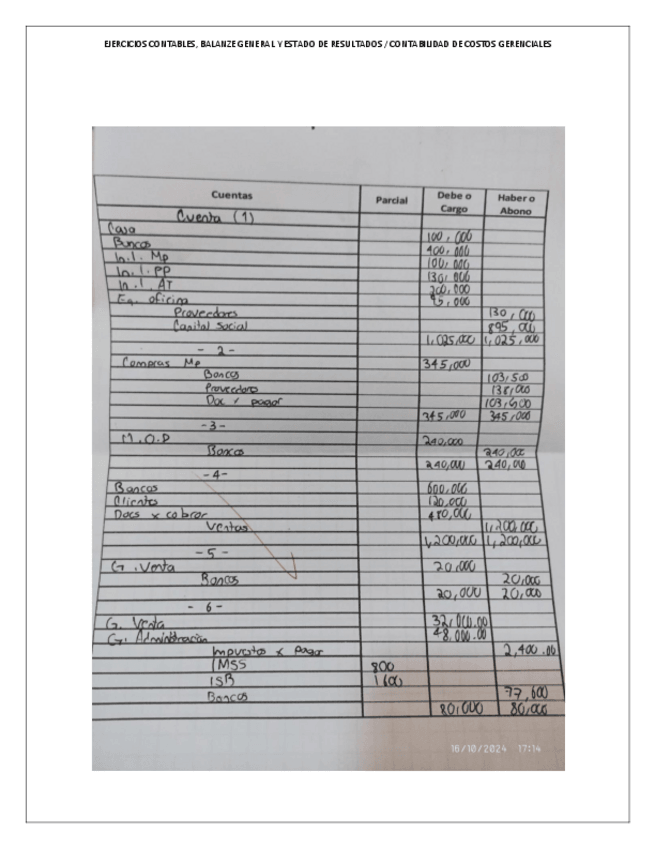 EJERCICIOS CONTABLES, BALANZE GENERAL Y ESTADO DE RESULTADOS / CONTABILIDAD DE COSTOS GERENCIALES
Cuentas Parcial Debe o Cargo Haber o Abono
Cuenta (1)
Caja 100,000
Bancos 400,000
In.I. Mp 100,000
In.I. PP 130,000
In.I. AT 200,000
Eq. oficina 95,000
Proveedores 130,000
Capital Social 895,000
1,025,000 1,025,000
- 2 -
Compras Mp 345,000
Bancos 103,500
Proveedores 138,000
Doc x pagar 103,500
345,000 345,000
- 3 -
M.O.D 240,000
Bancos 240,000
240,000 240,000
- 4 -
Bancos 600,000
Clientes 120,000
Docs x cobrar 480,000
Ventas 1,200,000
1,200,000 1,200,000
- 5 -
G. Venta 20,000
Bancos 20,000
20,000 20,000
- 6 -
G. Venta 32,000.00
G. Administración 48,000.00
Impuestos x Pagar 2,400.00
IMSS 800
ISR 1600
Bancos 77,600
80,000 80,000
16/10/2024 17:14